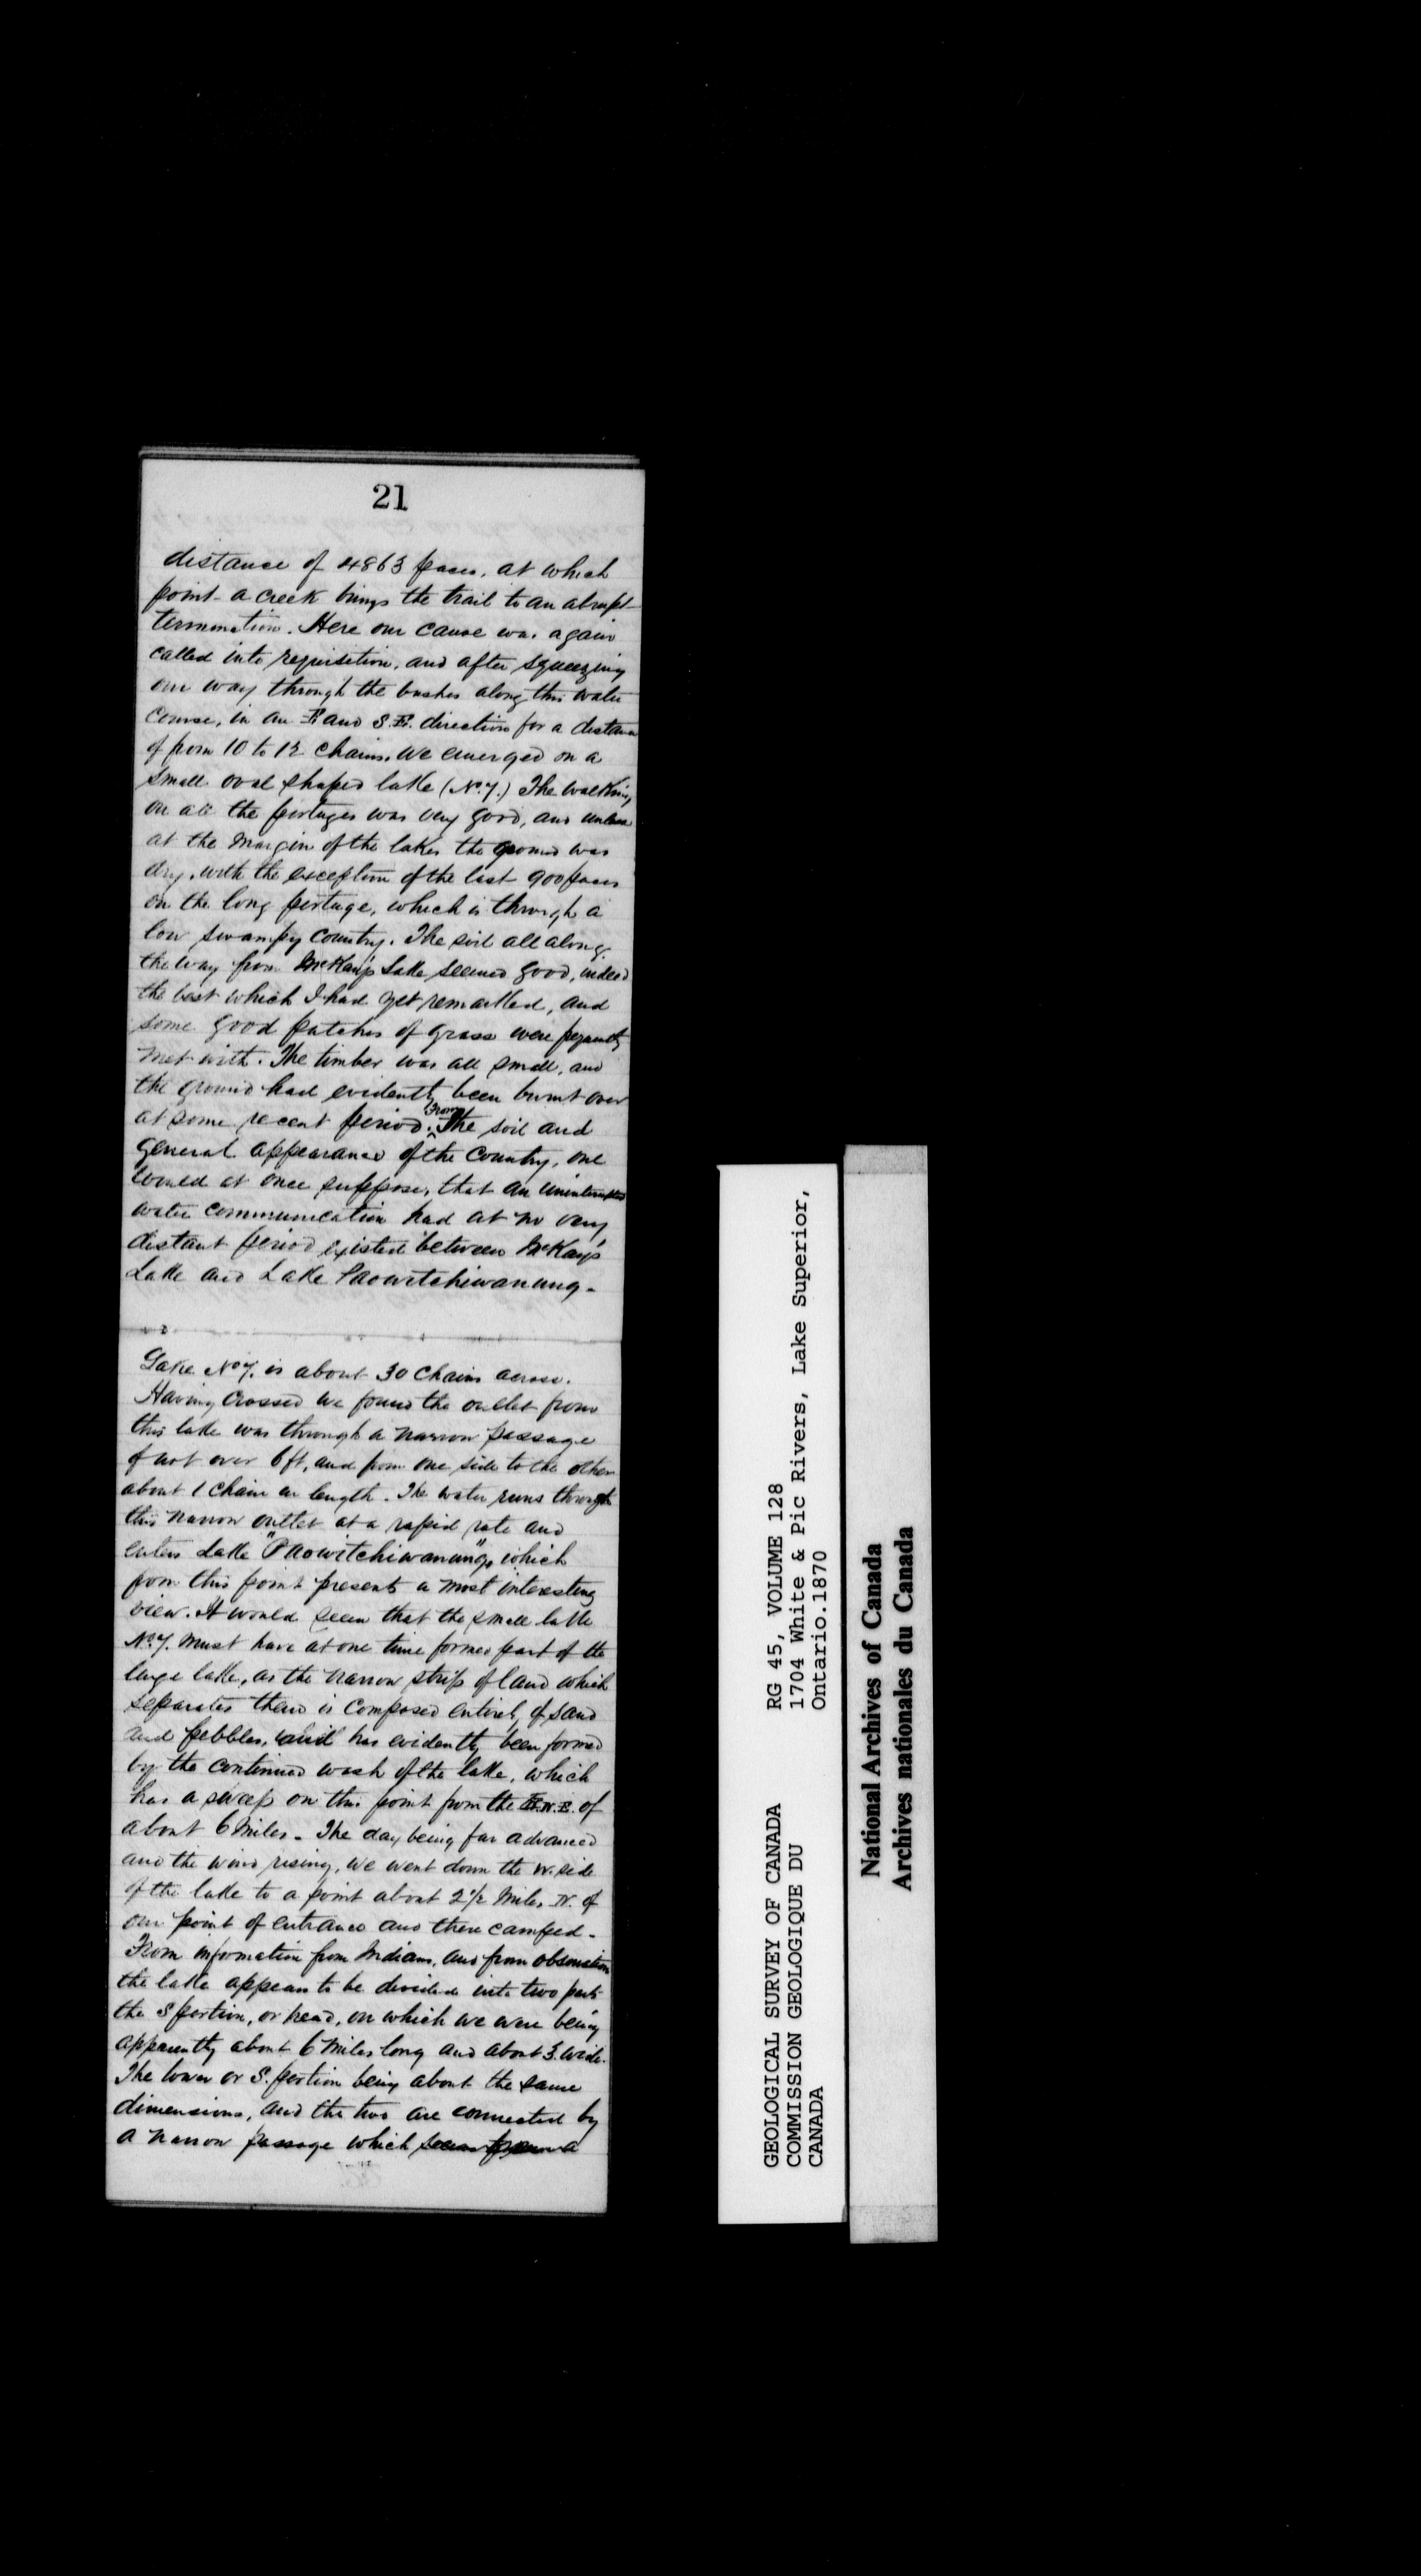 21
distance of 4863 paces, at which
point a creek brings the trail to an abrupt
termination. Here our canoe was again
called into requisition, and after squeezing
our way through the bushes along this water
course, in an E and S.E. direction for a distance
of from 10 to 12 chains, we emerged on a
small oval shaped lake (No. 7.) The walking
on all the portages was very good, and unless
at the margin of the lakes the ground was
dry, with the exception of the last 900 paces
on the long portage, which is through a
low swampy country. The soil all along
the way from McKay's Lake seemed good, indeed
the best which I had yet remarked, and
some good patches of grass were frequently
met with. The timber was all small, and
the ground had evidently been burnt over
at some recent period. From The soil and
general appearance of the country, one
would at once suppose, that an uninterrupted
water communication had at no very
distant period existed between McKay's
Lake and Lake Paowitchiwanung.
Lake No 7. is about 30 chains across.
Having crossed we found the outlet from
this lake was through a narrow passage
of not over 6 ft, and from one side to the other
about 1 chain in length. The water runs through
this narrow outlet at a rapid rate and
enters Lake "Paowitchiwanung", which
from this point presents a most interesting
view. It would seem that the small lake
No. 7. must have at one time formed part of the
large lake, as the narrow strip of land which
separates them is composed entirely of sand
and pebbles, and has evidently been formed
by the continued wash of the lake, which
has a sweep on this point from the N.E. of
about 6 miles. The day being far advanced
and the wind rising, we went down the W. side
of the lake to a point about 2 1/2 miles N. of
our point of entrance and there camped.
From information from Indians, and from observation
the lake appears to be divided into two parts
the S portion, or head, on which we were being
apparently about 6 miles long and about 3 wide.
The lower or S. portion being about the same
dimensions, and the two are connected by
a narrow passage which
GEOLOGICAL SURVEY OF CANADA
COMMISSION GEOLOGIQUE DU
CANADA
RG 45, VOLUME 128
1704 White & Pic Rivers, Lake Superior,
Ontario.1870
National Archives of Canada
Archives nationales du Canada